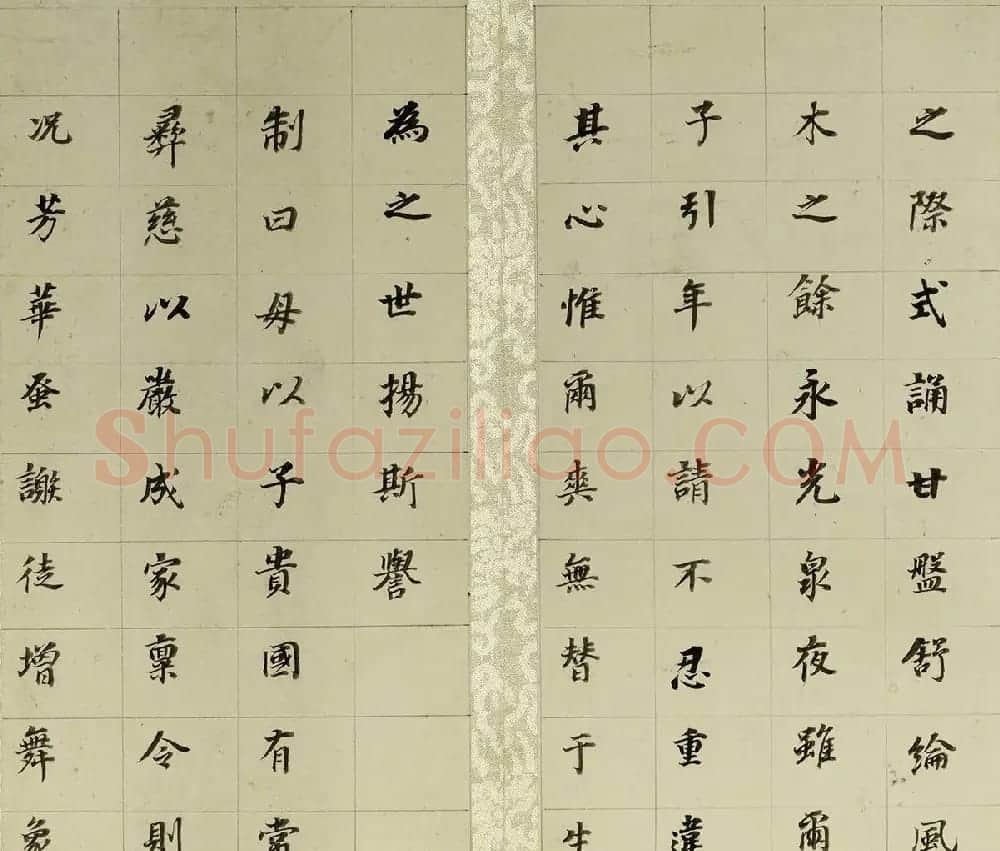 之際式誦甘盤舒綸風
木之餘永光泉夜雖爾
子引年以請不忍重違
其心惟爾爽無替于
為之世揚斯譽
制曰母以子貴國有常
彝慈以嚴成家稟令則
况芳華蚤謝徒增舞象
Shufaziliao.COM